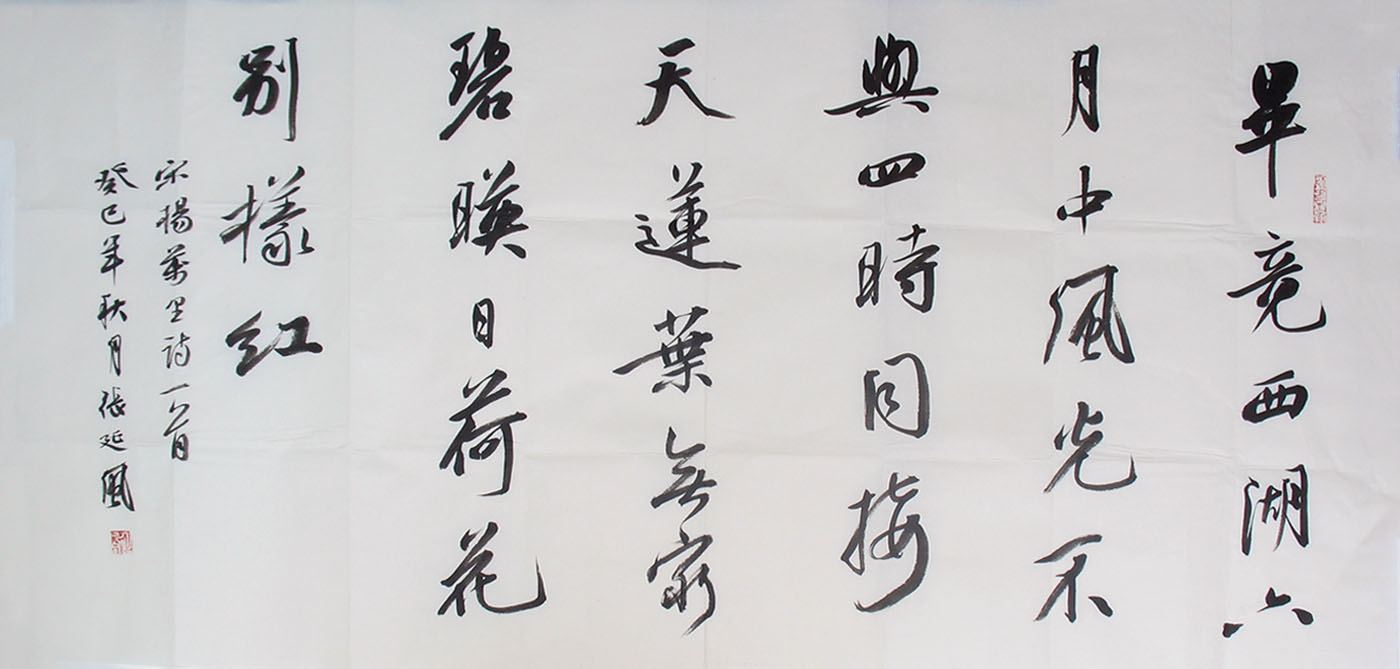 畢竟西湖六
月中風光不
與四時同接
天蓮葉無窮
碧暎日荷花
別樣紅
宋楊萬里詩一首
癸巳年秋月張延風